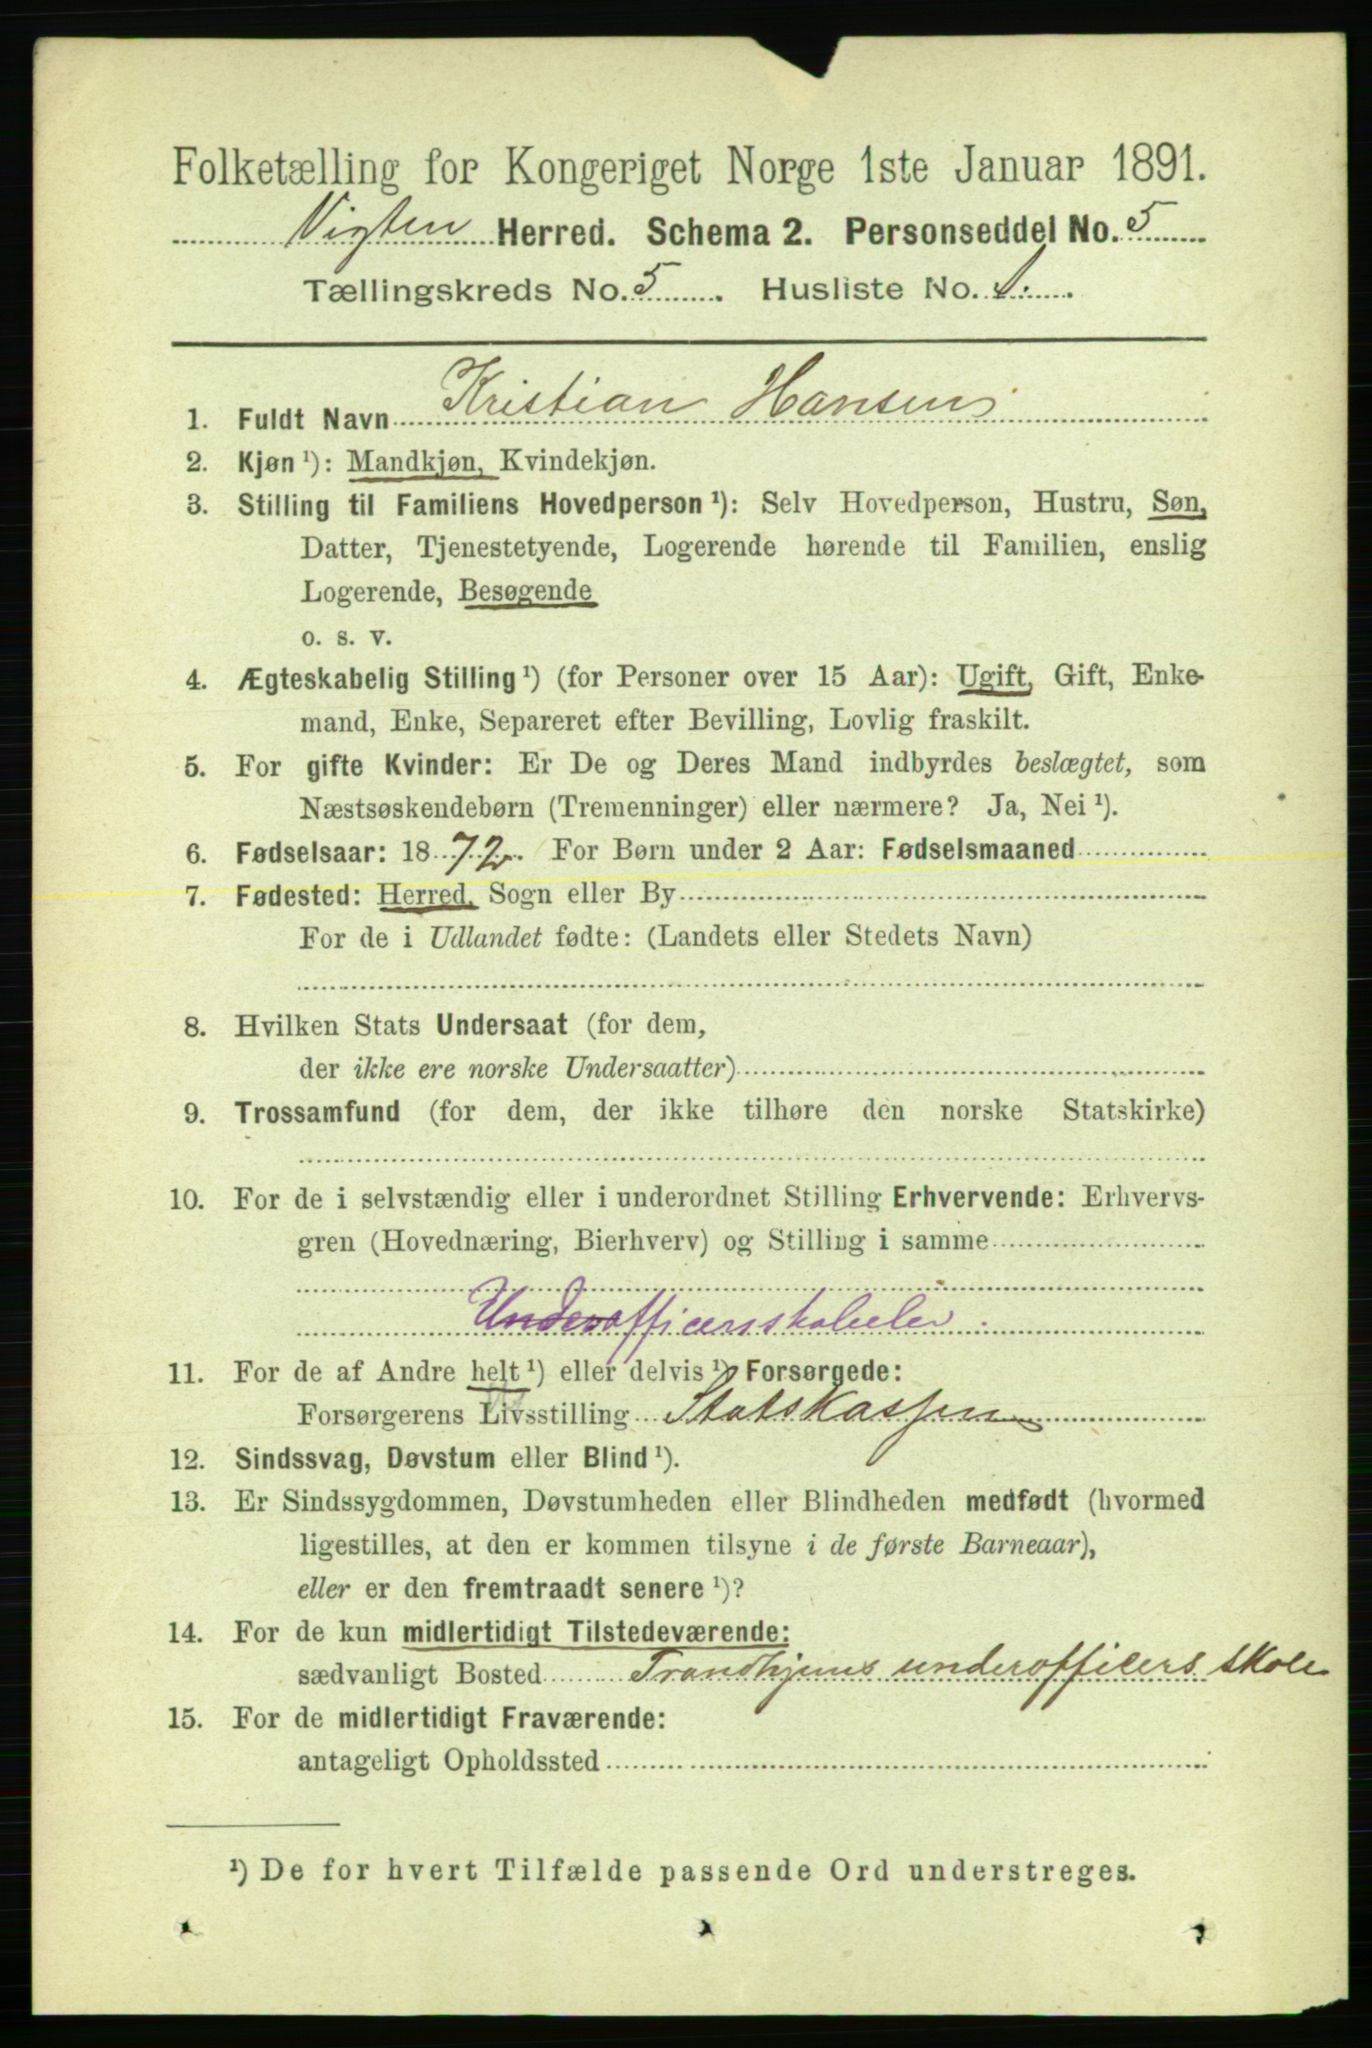 Folketælling for Kongeriget Norge 1ste Januar 1891.
Vigten Herred. Schema 2. Personseddel No. 5
Tællingskreds No. 5. Husliste No. 1.
1. Fuldt Navn Kristian Hansen
2. Kjøn ¹): Mandkjøn, Kvindekjøn.
3. Stilling til Familiens Hovedperson ¹): Selv Hovedperson, Hustru, Søn,
Datter, Tjenestetyende, Logerende hørende til Familien, enslig
Logerende, Besøgende
o. s. v.
4. Ægteskabelig Stilling ¹) (for Personer over 15 Aar): Ugift, Gift, Enke-
mand, Enke, Separeret efter Bevilling, Lovlig fraskilt.
5. For gifte Kvinder: Er De og Deres Mand indbyrdes beslægtet, som
Næstsøskendebørn (Tremenninger) eller nærmere? Ja, Nei ¹).
6. Fødselsaar: 1872. For Børn under 2 Aar: Fødselsmaaned
7. Fødested: Herred, Sogn eller By
For de i Udlandet fødte: (Landets eller Stedets Navn)
8. Hvilken Stats Undersaat (for dem,
der ikke ere norske Undersaatter)
9. Trossamfund (for dem, der ikke tilhøre den norske Statskirke)
10. For de i selvstændig eller i underordnet Stilling Erhvervende: Erhvervs-
gren (Hovednæring, Bierhverv) og Stilling i samme
Underofficersskoleelev.
11. For de af Andre helt ¹) eller delvis ¹) Forsørgede:
Forsørgerens Livsstilling Statskassen
12. Sindssvag, Døvstum eller Blind ¹).
13. Er Sindssygdommen, Døvstumheden eller Blindheden medfødt (hvormed
ligestilles, at den er kommen tilsyne i de første Barneaar),
eller er den fremtraadt senere ¹)?
14. For de kun midlertidigt Tilstedeværende:
sædvanligt Bosted Trondhjems underofficers skole
15. For de midlertidigt Fraværende:
antageligt Opholdssted
¹) De for hvert Tilfælde passende Ord understreges.